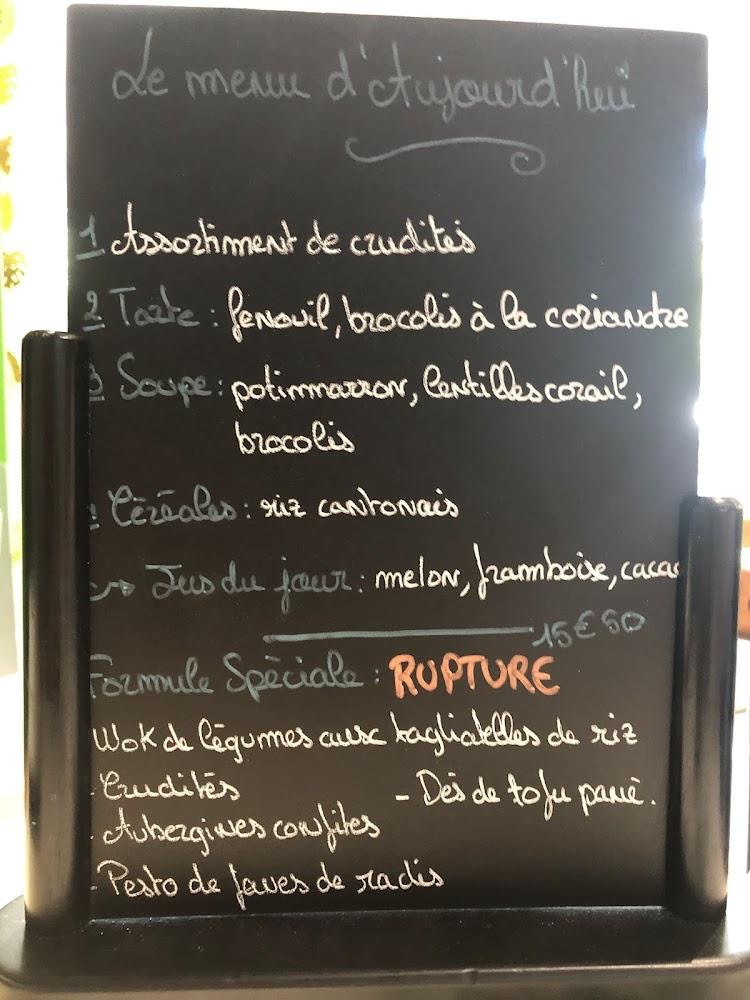 Le menu d'Aujourd'hui
1 Assortiment de crudités
2 Tarte : fenouil, brocolis à la coriandre
3 Soupe : potimmarron, lentilles corail,
brocolis
Céréales : riz cantonais
→ Jus du jour : melon, framboise, cacao
15€50
Formule Spéciale : RUPTURE
Wok de légumes aux tagliatelles de riz
- Crudités
- Dés de tofu pané.
- Aubergines confites
- Pesto de fanes de radis